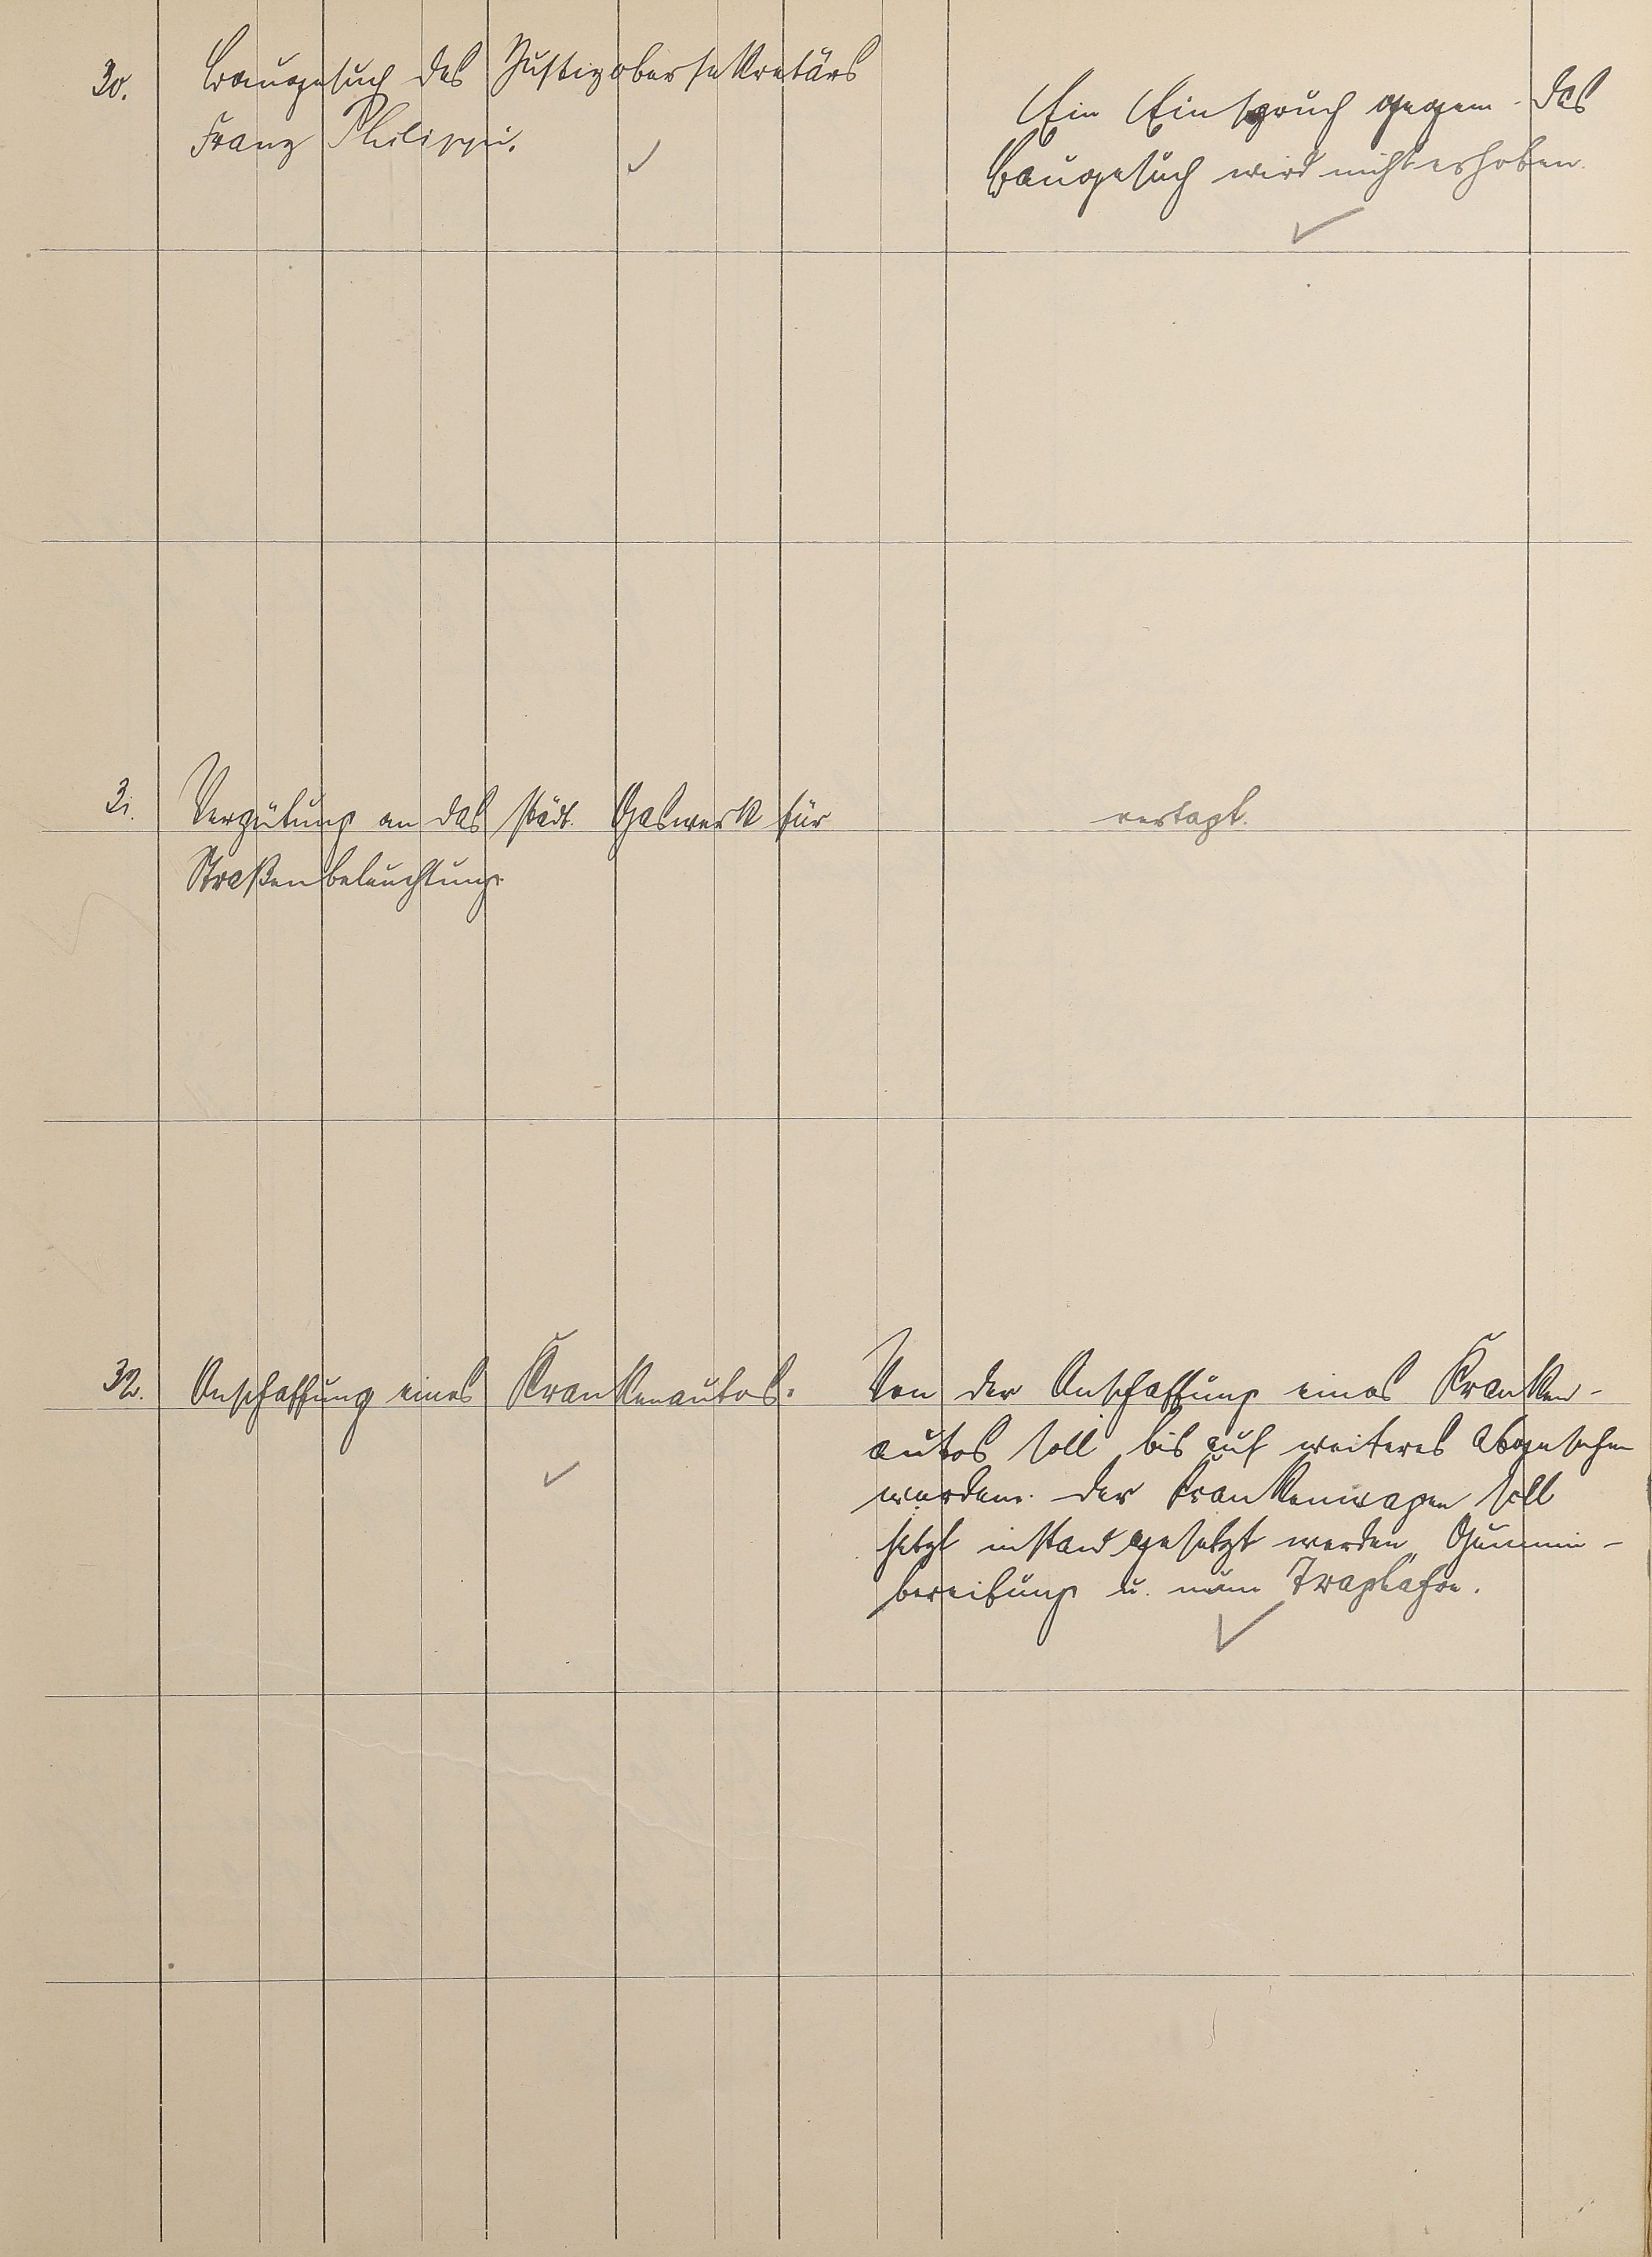 30. Baugesuch des Justizobersekretärs
Franz Philippi.
Ein Einspruch gegen das
Baugesuch wird nicht erhoben.
31. Vergütung an das städt. Gaswerk für
Straßenbeleuchtung.
vertagt.
32. Anschaffung eines Krankenautos.
Von der Anschaffung eines Kranken-
autos soll bis auf weiteres abgesehen
werden. Der Krankenwagen soll
jetzt instand gesetzt werden, Gummi-
bereifung u. neue Tragbahre.